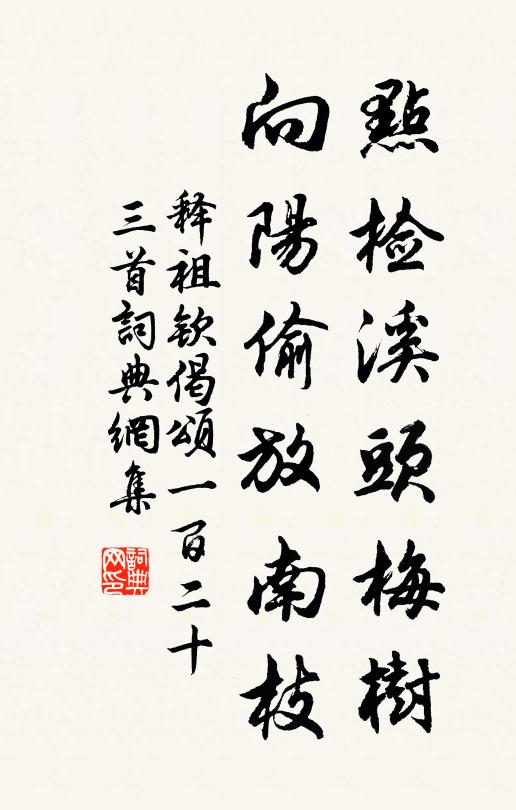 點檢溪頭梅樹
向陽偷放南枝
释祖钦偈頌一百二十
三首詞典網集
詞典網印